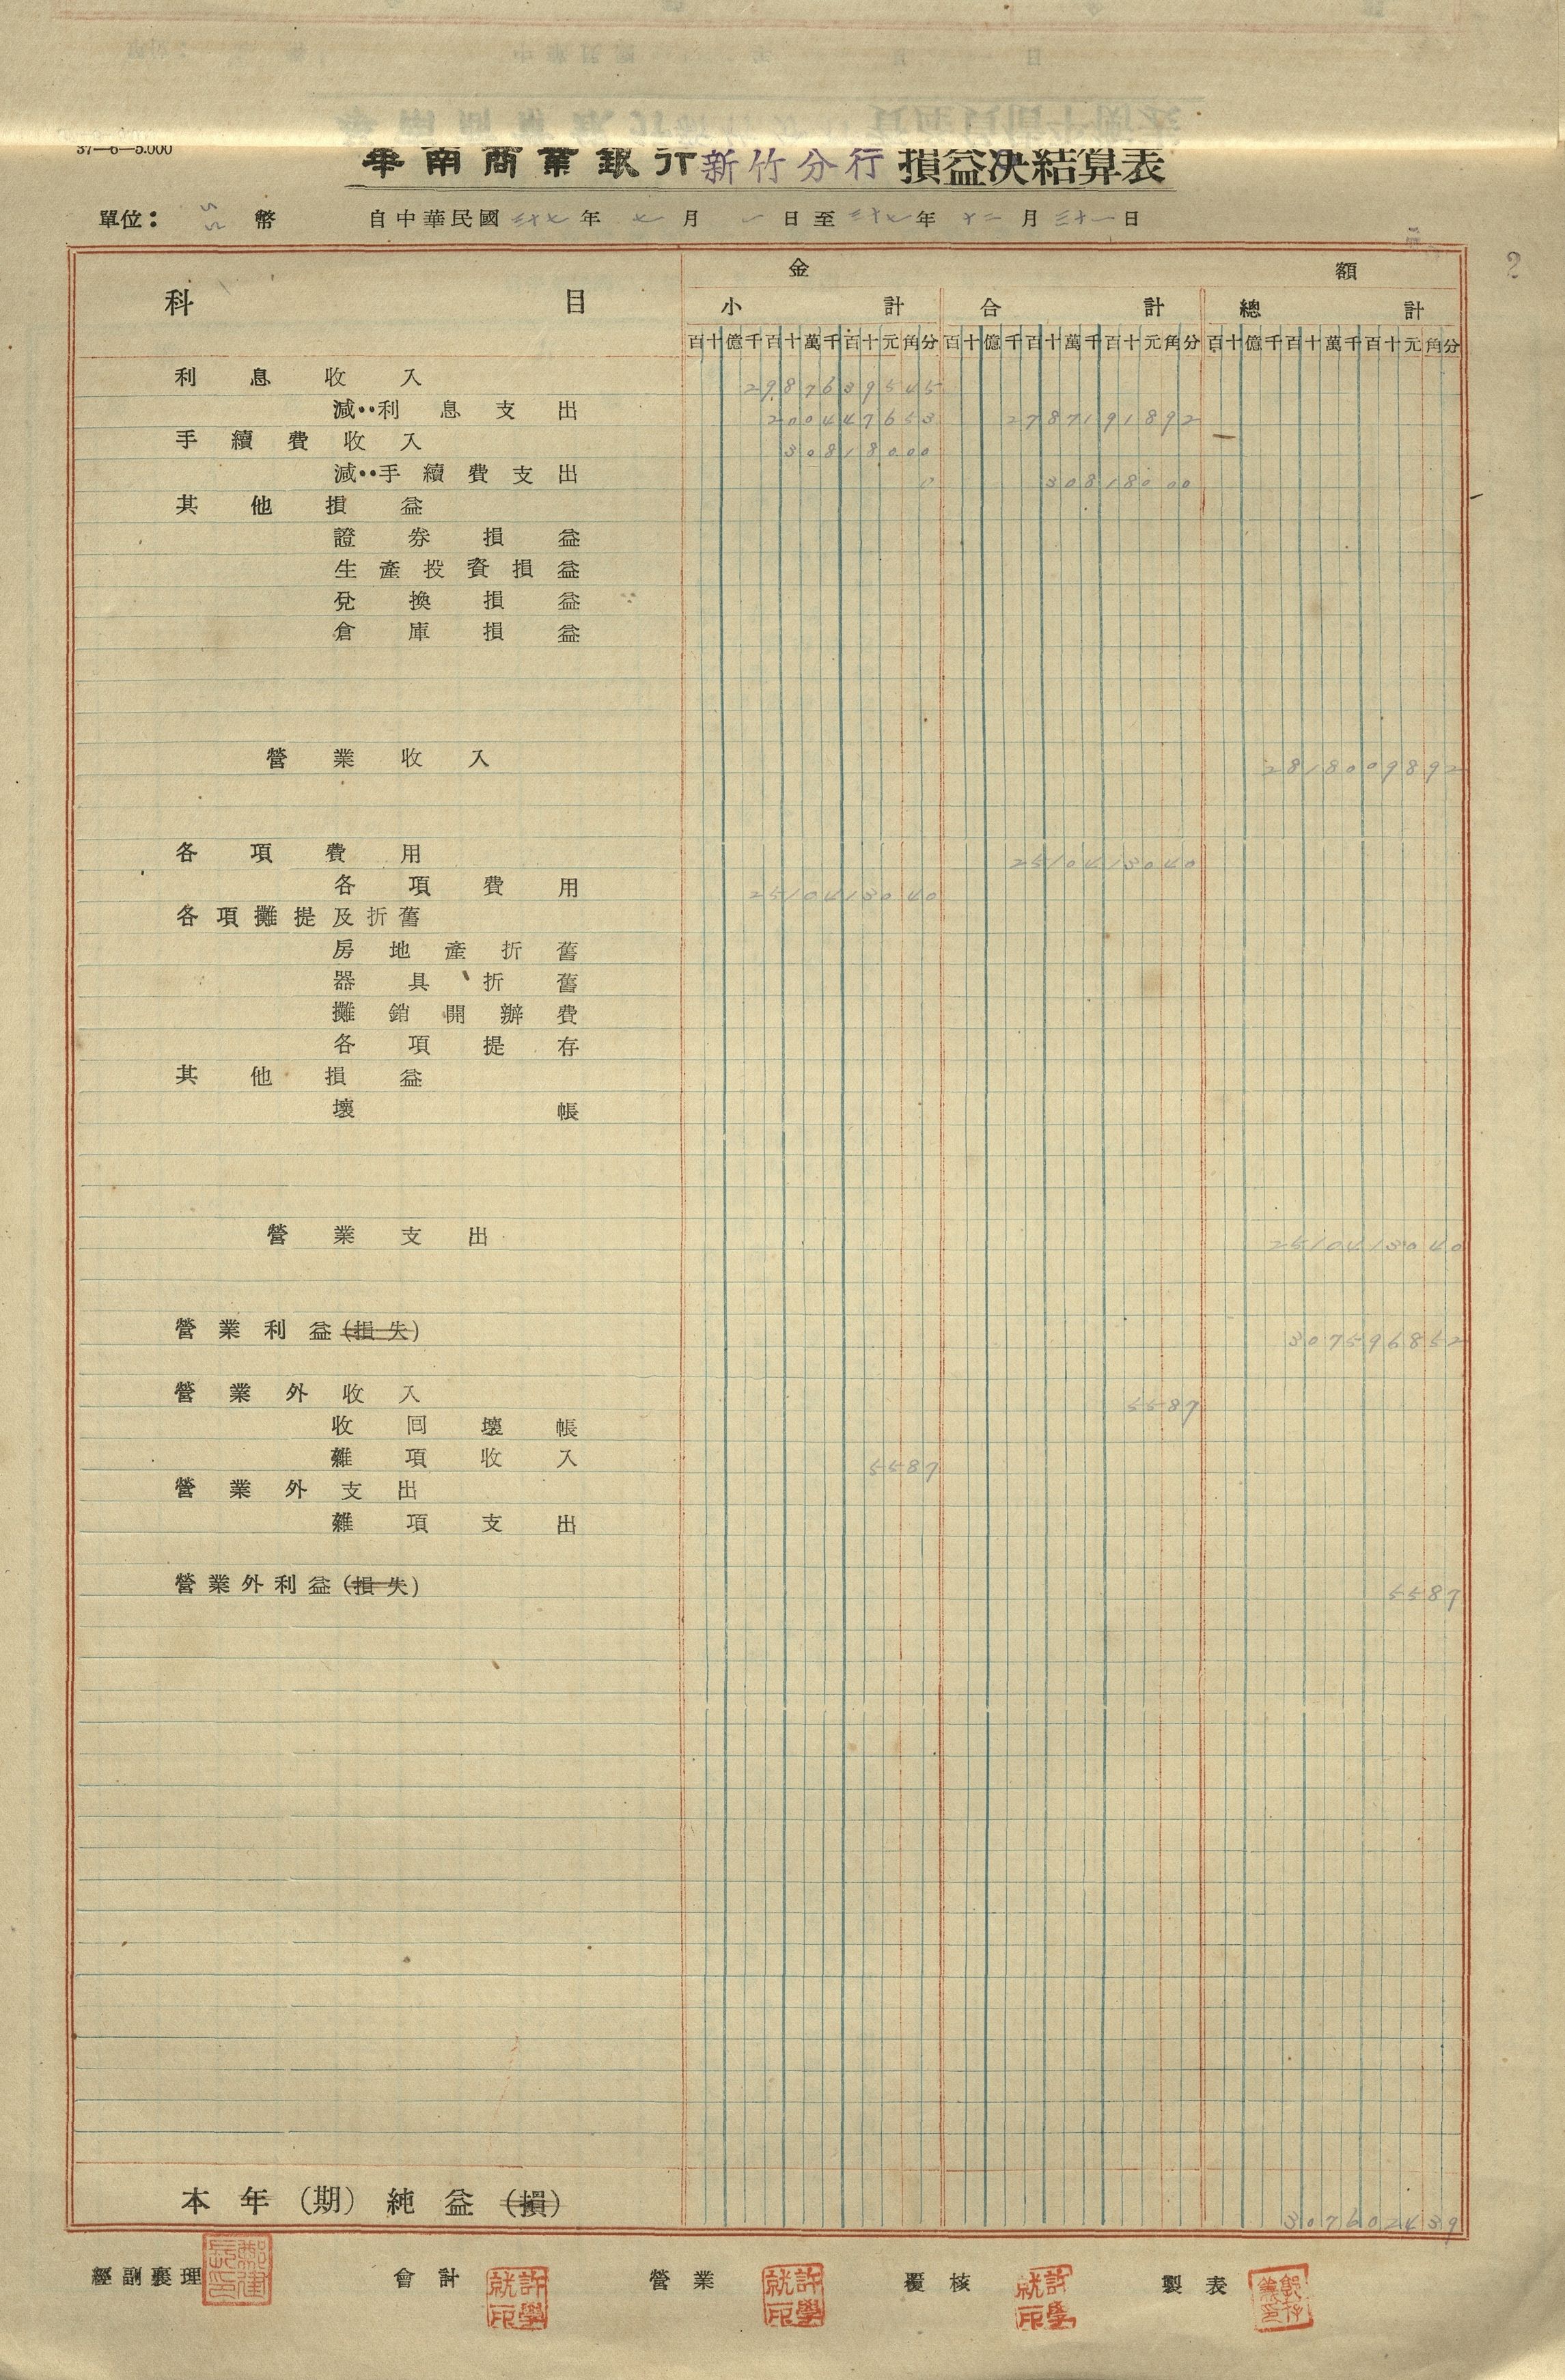 37—6—5.000
華南商業銀行新竹分行損益決結算表
單位： 幣 自中華民國三十七年七月一日至三十七年十二月三十一日
2
金 額
科 目 小計 合計 總計
百十億千百十萬千百十元角分 百十億千百十萬千百十元角分 百十億千百十萬千百十元角分
利息收入 2987639545
減‥利息支出 200447653 2787191892
手續費收入 30818000
減‥手續費支出 0 30818000
其他損益
證券損益
生產投資損益
兌換損益
倉庫損益
營業收入 2818009892
各項費用 2510413040
各項費用 2510413040
各項攤提及折舊
房地產折舊
器具折舊
攤銷開辦費
各項提存
其他損益
壞帳
營業支出 2510413040
營業利益(損失) 307596852
營業外收入 5587
收回壞帳
雜項收入 5587
營業外支出
雜項支出
營業外利益(損失) 5587
本年(期)純益(損) 307602439
經副襄理 會計 許學就印 營業 許學就印 覆核 許學就印 製表